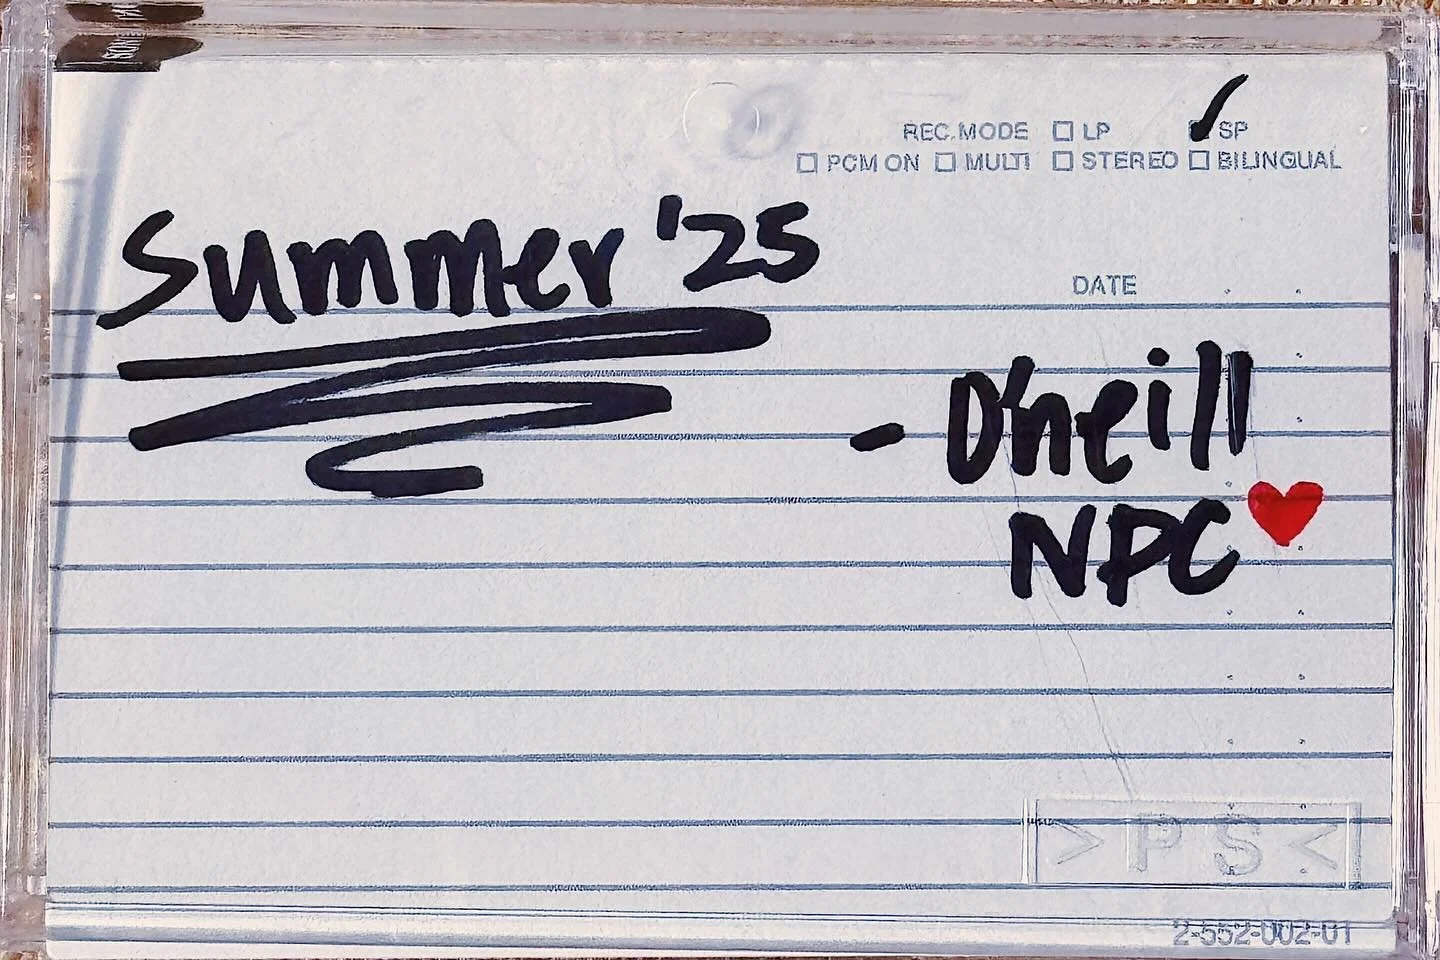 REC.MODE ☐ LP ☑ SP
☐ PCM ON ☐ MULTI ☐ STEREO ☐ BILINGUAL
Summer '25
DATE
- O'neill
NPC ♥
>PS<
2-552-002-01